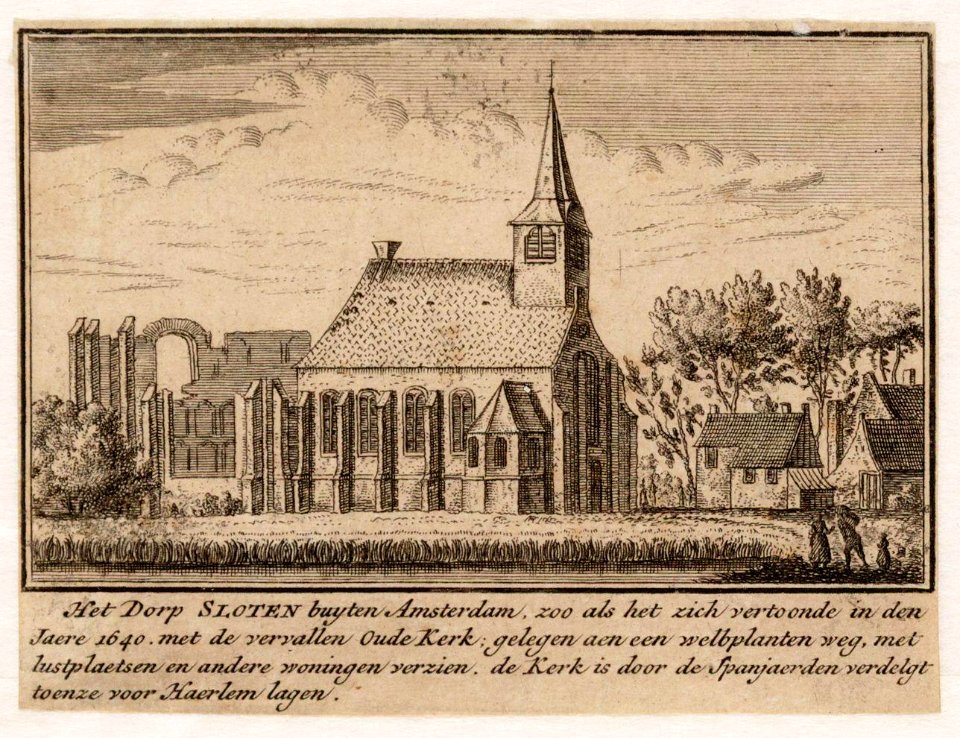 Het Dorp SLOTEN buyten Amsterdam, zoo als het zich vertoonde in den
Jaere 1640. met de vervallen Oude Kerk; gelegen aen een welbplanten weg, met
lustplaetsen en andere woningen verzien. de Kerk is door de Spanjaerden verdelgt
toenze voor Haerlem lagen.